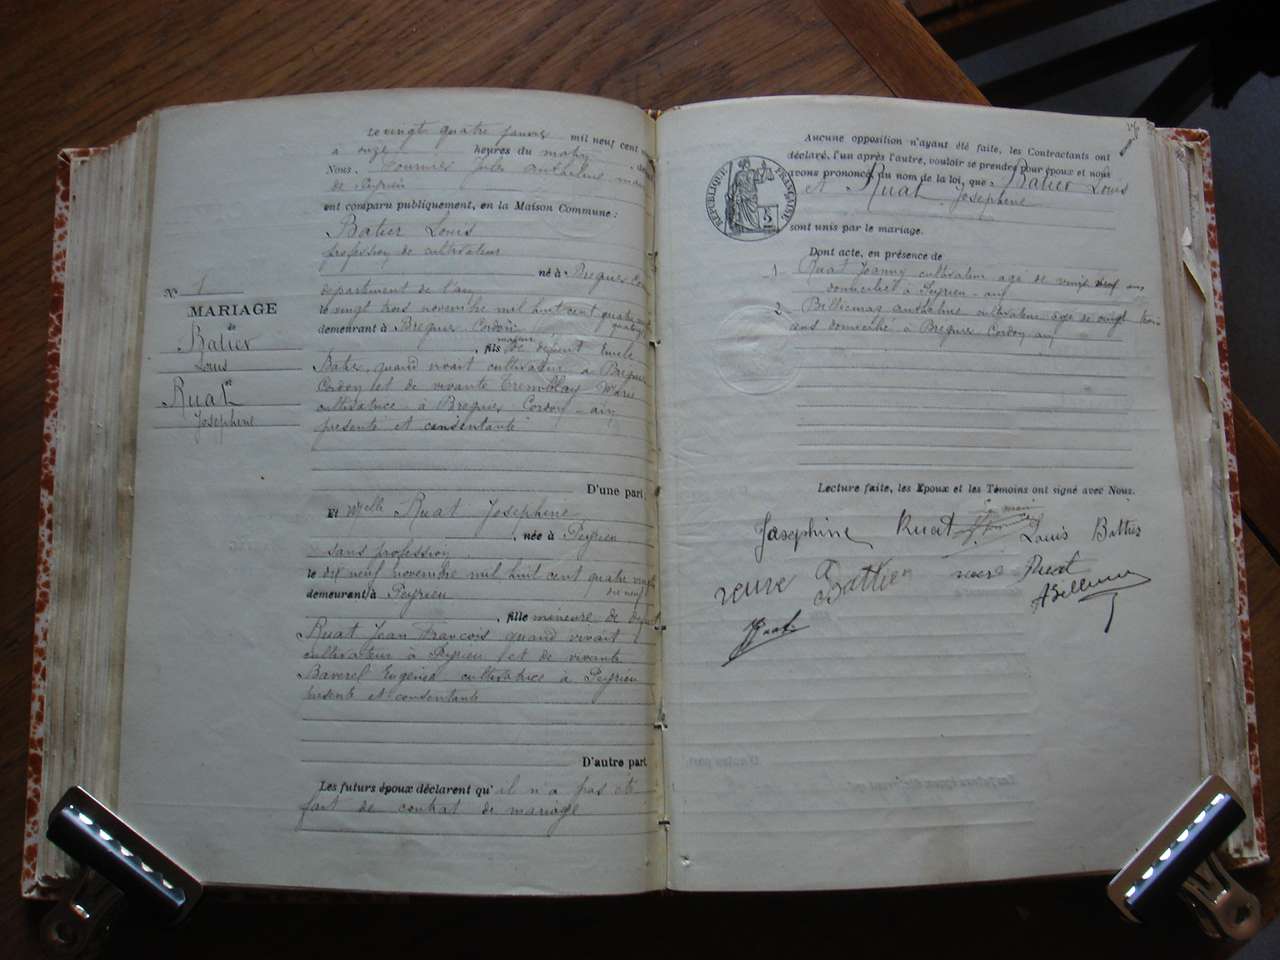 Le vingt quatre janvier mil neuf cent
à onze heures du matin
Nous, Fournier Jules Anthelme
de Peyrieu
ont comparu publiquement, en la Maison Commune :
Batier Louis
profession de cultivateur
né à Bregnier Cordon
department de l'ain
le vingt trois novembre mil huit cent quatre vingt
quatorze
demeurant à Bregnier Cordon
majeur
, fils de défunt Emile
Batier quand vivait cultivateur à Bregnier
Cordon et de vivante Tremblay Marie
cultivatrice à Bregnier Cordon - ain
présente et consentante
D'une part,
Et Melle Ruat Josephine
, née à Peyrieu
sans profession
le dix neuf novembre mil huit cent quatre vingt
dix neuf
demeurant à Peyrieu
, fille mineure de défunt
Ruat Jean François quand vivait
cultivateur à Peyrieu et de vivante
Baverel Eugénie cultivatrice à Peyrieu
présente et consentante
D'autre part
Les futurs époux déclarent qu'il n'a pas été
fait de contrat de mariage
N° 1
MARIAGE
de
Batier
Louis
et
Ruat
Josephine
Aucune opposition n'ayant été faite, les Contractants ont
déclaré, l'un après l'autre, vouloir se prendre pour époux et nous
avons prononcé, au nom de la loi, que Batier Louis
et Ruat Josephine
sont unis par le mariage.
RÉPUBLIQUE FRANÇAISE
Dont acte, en présence de
1 Ruat Joanny cultivateur agé de vingt neuf ans
domicilié à Peyrieu - ain
2 Billiemaz anthelme cultivateur age de vingt trois
ans domicilié à Bregnier Cordon ain
Lecture faite, les Epoux et les Témoins ont signé avec Nous.
Le maire
Josephine Ruat Louis Battier
veuve Battier veuve Ruat
Ruat